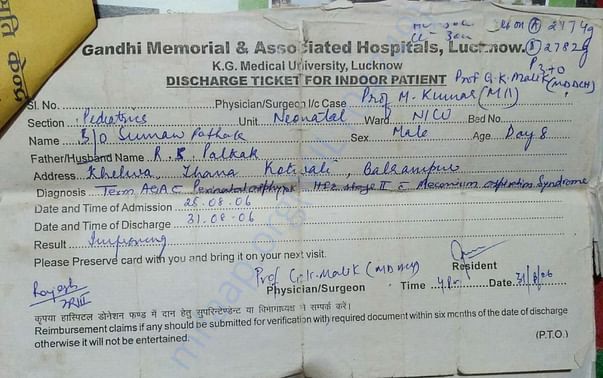 wt on (A) 2774g
(B) 2782g
Gandhi Memorial & Associated Hospitals, Lucknow.
K.G. Medical University, Lucknow
DISCHARGE TICKET FOR INDOOR PATIENT Prof G.K. Malik (MDDCH)
Sl. No. Physician/Surgeon I/c Case Prof M. Kumar (MD)
Section Pediatrics Unit Neonatal Ward NICU Bed No.
Name B/O Suman Pathak Sex Male Age Day 8
Father/Husband Name R.S. Pathak
Address Khelwa, Thana Kotwali, Balrampur
Diagnosis Term AGA c Perinatal asphyxia HIE stage II c Meconium aspiration Syndrome
Date and Time of Admission 25.08.06
Date and Time of Discharge 31.08.06
Result Improving
Please Preserve card with you and bring it on your next visit.
Prof G.K. Malik (MD DCH) Resident
Physician/Surgeon Time 4 P. Date 31/8/06
Rajesh
JRIII
कृपया हास्पिटल डोनेशन फण्ड में दान हेतु सुपरिन्टेन्डेन्ट या विभागाध्यक्ष से सम्पर्क करें।
Reimbursement claims if any should be submitted for verification with required document within six months of the date of discharge
otherwise it will not be entertained. (P.T.O.)